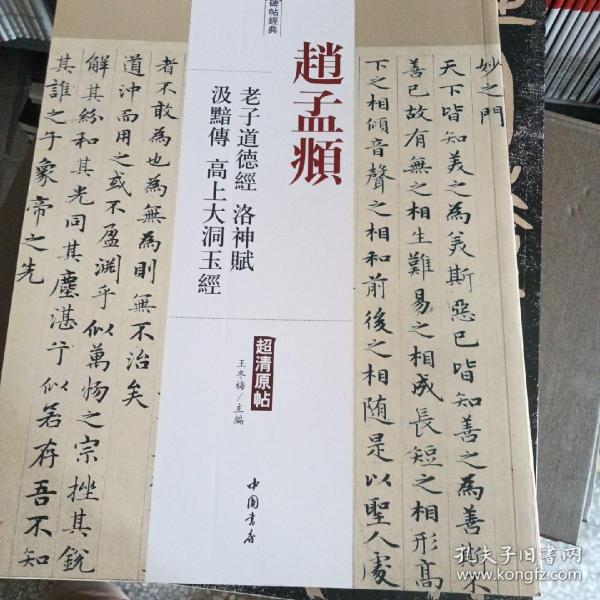 碑帖經典
趙孟頫
老子道德經 洛神賦
汲黯傳 高上大洞玉經
超清原帖
王冬梅/主編
中国书店
妙之門
天下皆知美之為美斯惡已皆知善之為善斯不
善已故有無之相生難易之相成長短之相形高
下之相傾音聲之相和前後之相随是以聖人處
者不敢為也為無為則無不治矣
道沖而用之或不盈淵乎似萬物之宗挫其銳
解其紛和其光同其塵湛乎似若存吾不知
其誰之子象帝之先
孔夫子旧书网
www.kongfz.com